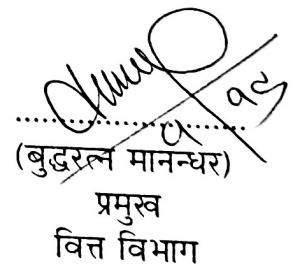 (बुद्धरत्न मानन्धर)
प्रमुख
वित्त विभाग